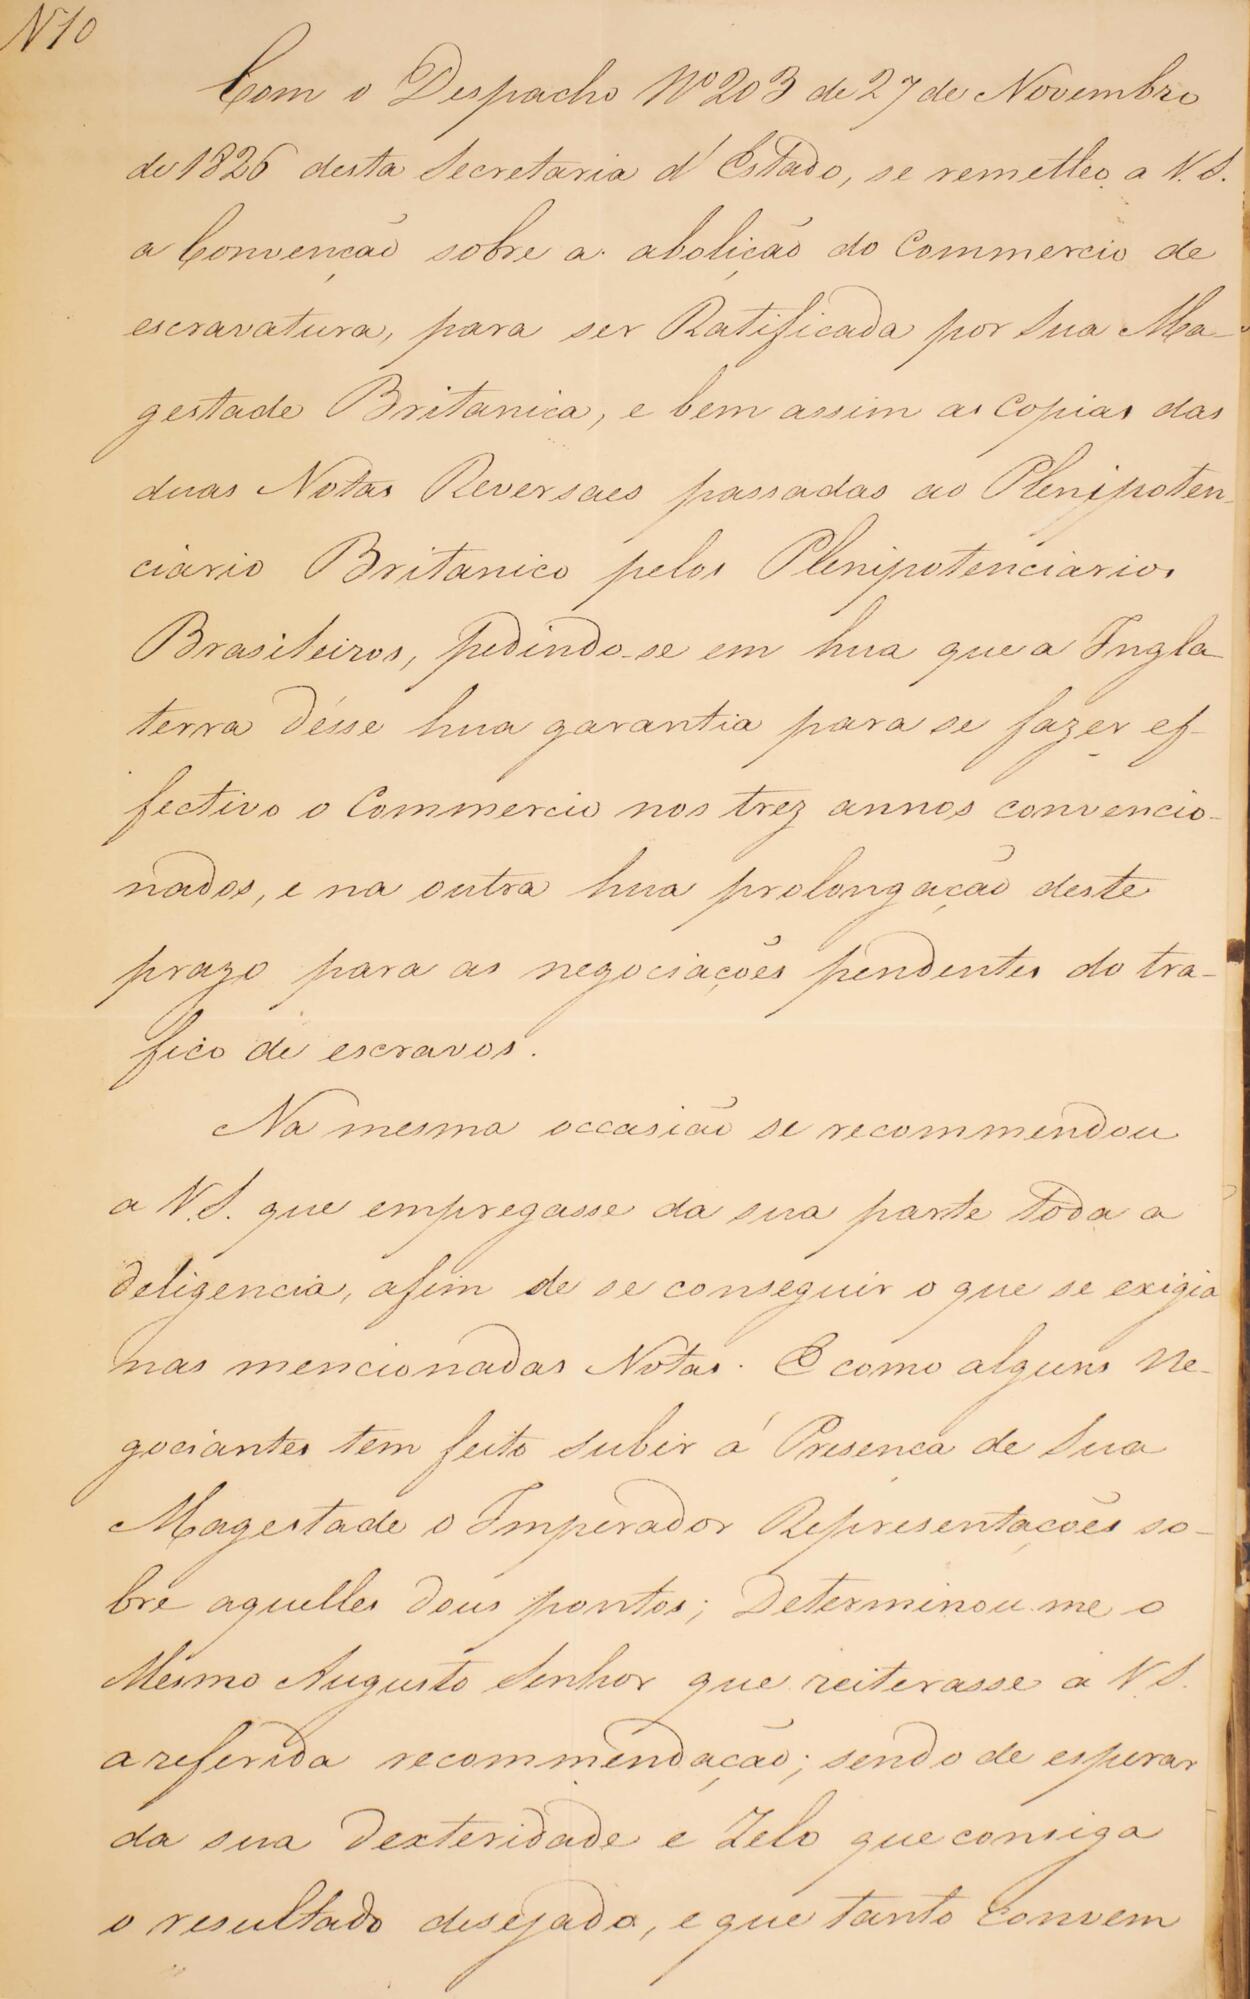 N 10
Com o Despacho Nº 203 de 27 de Novembro
de 1826 desta Secretaria d'Estado, se remetteo a V. S.
a Convenção sobre a abolição do Commercio de
escravatura, para ser Ratificada por Sua Ma-
gestade Britanica, e bem assim as copias das
duas Notas Reversaes passadas ao Plenipoten-
ciario Britanico pelos Plenipotenciarios
Brasileiros, pedindo-se em hua que a Ingla-
terra désse hua garantia para se fazer ef-
fectivo o Commercio nos trez annos convencio-
nados, e na outra hua prolongação deste
prazo para as negociações pendentes do tra-
fico de escravos.
Na mesma occasião se recommendou
a V. S. que empregasse da sua parte toda a
deligencia, afim de se conseguir o que se exigia
nas mencionadas Notas. E como alguns Ne-
gociantes tem feito subir á Presença de Sua
Magestade o Imperador Representações so-
bre aquelles dous pontos; Determinou-me o
Mesmo Augusto Senhor que reiterasse a V. S.
a referida recommendação; sendo de esperar
da sua dexteridade e Zelo que consiga
o resultado desejado, e que tanto convem